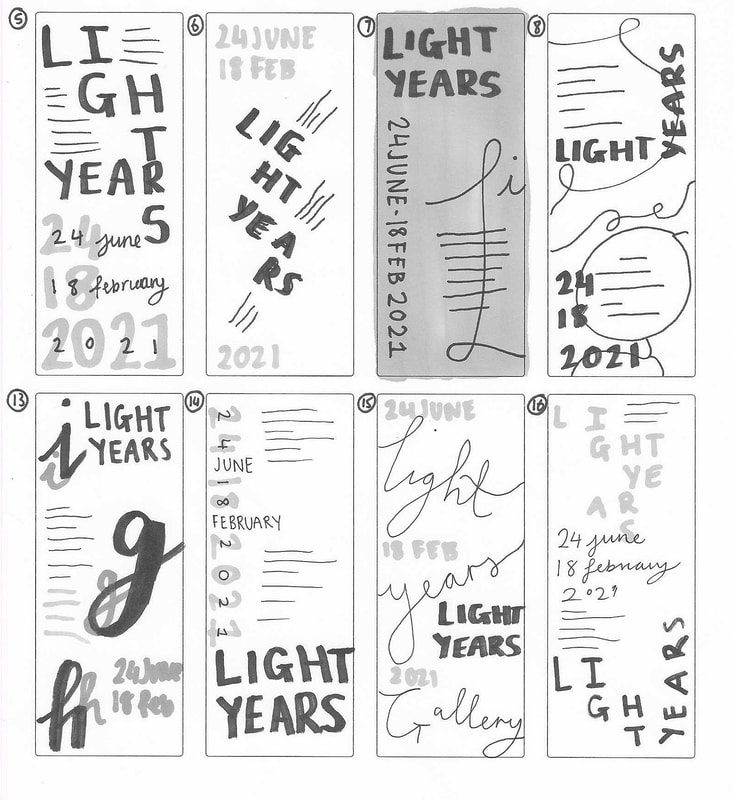 5
LI
GH
T
YEAR
S
24
24 june
18
18 february
2021
2021
6
24 JUNE
18 FEB
LIG
HT
YEA
RS
2021
7
LIGHT
YEARS
24 JUNE - 18 FEB 2021
Li
8
LIGHT
YEARS
24
18
2021
13
i
i
LIGHT
YEARS
g
g
h
h
24 JUNE
18 Feb
14
24 18 2021
24
JUNE
18
FEBRUARY
2021
LIGHT
YEARS
15
24 JUNE
light
18 FEB
years
LIGHT
YEARS
2021
Gallery
16
LI
GHT
YE
AR
S
24 june
18 february
2021
LI
GH
T
YEARS